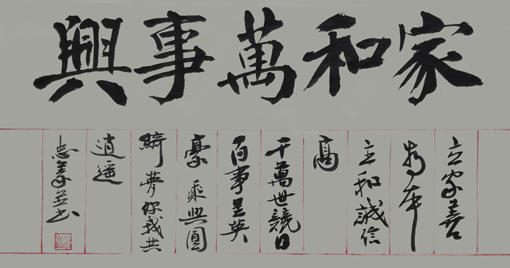 家和萬事興
立家善
為本
立和誠信
高
千萬世競日
百事呈英
豪乘興圓
綺夢你我共
逍遥